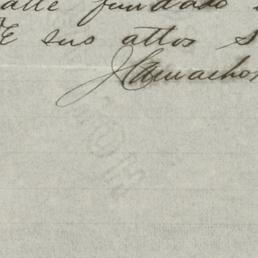 alle fundado
E sus attos S
J Camachos